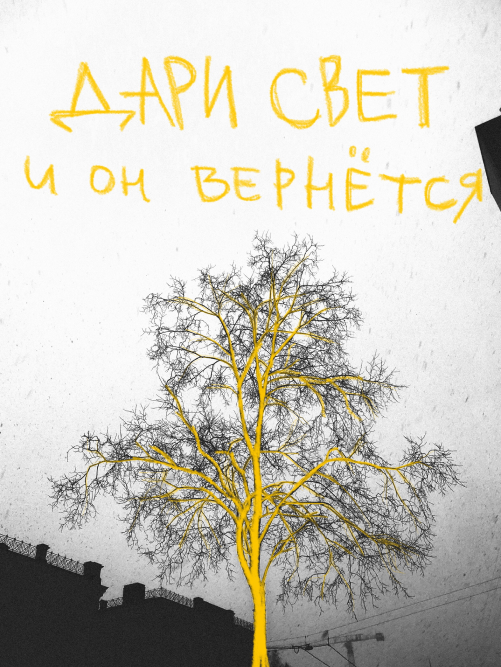 ДАРИ СВЕТ
И ОН ВЕРНЁТСЯ